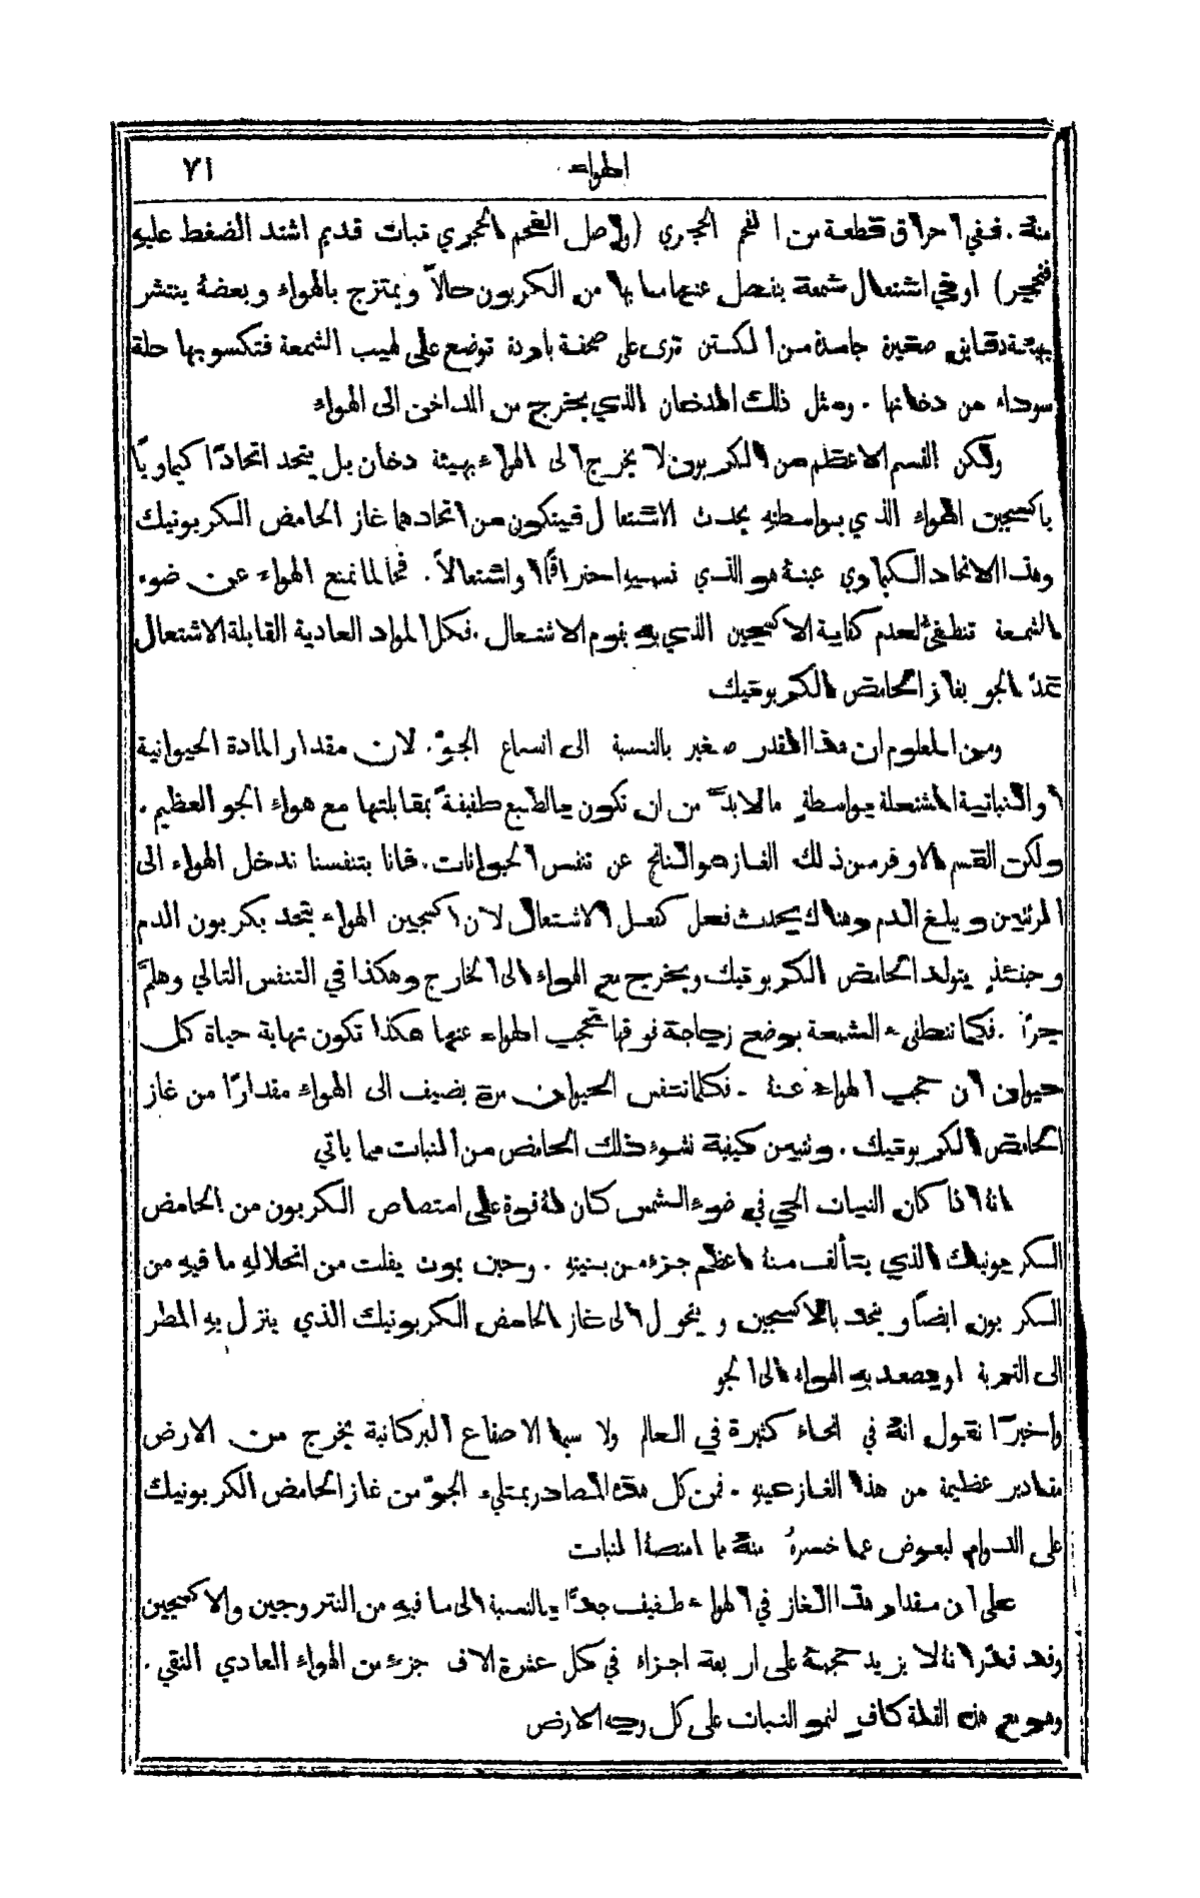 الهواء ٧١
منهُ . ففي احراق قطعة من الفحم الحجري (واصل الفحم الحجري نبات قديم اشتد الضغط عليهِ
فتحجر) او في اشتعال شمعة ينفصل عنهما ما بها من الكربون حالاً ويمتزج بالهواء وبعضهُ ينتشر
بهيئة دقايق صغيرة جامدة من الكستن ترى على صحفة باردة توضع على لهيب الشمعة فتكسوها حلة
سوداء من دخانها . ومثل ذلك الدخان الذي يخرج من المداخن الى الهواء
ولكن القسم الاعظم من الكربون لا يخرج الى الهواء بهيئة دخان بل يتحد اتحادًا كيماويًّا
باكسجين الهواء الذي بواسطتهِ يحدث الاشتعال فيتكون من اتحادهما غاز الحامض الكربونيك
وهذا الاتحاد الكيماوي عينهُ هو الذي نسميهِ احتراقًا واشتعالاً . فحالما نمنع الهواء عن ضوء
الشمعة تنطفئُ لعدم كفاية الاكسجين الذي بهِ يقوم الاشتعال . فكل المواد العادية القابلة الاشتعال
تمدّ الجو بغاز الحامض الكربونيك
ومن المعلوم ان هذا المقدر صغير بالنسبة الى اتساع الجوّ . لان مقدار المادة الحيوانية
او النباتية المشتعلة بواسطةٍ ما لابدَّ من ان تكون بالطبع طفيفةً بمقابلتها مع هواء الجو العظيم .
ولكن القسم الاوفر من ذلك الغاز هو الناتج عن تنفس الحيوانات . فاننا بتنفسنا ندخل الهواء الى
الرئتين ويبلغ الدم وهناك يحدث فعل كفعل الاشتعال لان اكسجين الهواء يتحد بكربون الدم
وحينئذٍ يتولد الحامض الكربونيك ويخرج مع الهواء الى الخارج وهكذا في التنفس التالي وهلمَّ
جرًّا . فكما تنطفيء الشمعة بوضع زجاجة فوقها تحجب الهواء عنها هكذا تكون نهاية حياة كل
حيوان ان حجب الهواء عنهُ . فكلما تنفس الحيوان مرة يضيف الى الهواء مقدارًا من غاز
الحامض الكربونيك . ونبين كيفية نشوء ذلك الحامض من النبات مما ياتي
انهُ اذا كان النبات الحي في ضوء الشمس كان لهُ قوة على امتصاص الكربون من الحامض
الكربونيك الذي يتألف منهُ اعظم جزء من بنيتهِ . وحين يموت يفلت من انحلالهِ ما فيهِ من
الكربون ايضاً ويتحد بالاكسجين ويتحول الى غاز الحامض الكربونيك الذي ينزل بهِ المطر
الى التربة او يصعد بهِ الهواء الى الجو
واخيرًا نقول انهُ في انحاء كثيرة في العالم ولا سيما الاصقاع البركانية يخرج من الارض
مقادير عظيمة من هذا الغاز عينهِ . فمن كل هذه المصادر يمتليء الجوّ من غاز الحامض الكربونيك
على الدوام ليعوض عما خسرهُ منهُ بما امتصهُ النبات
على ان مقدار هذا الغاز في الهواء طفيف جدًّا بالنسبة الى ما فيهِ من النتروجين والاكسجين
وقد قدّر انهُ لا يزيد حجمهُ على اربعة اجزاء في كل عشرة الاف جزءٍ من الهواء العادي النقي .
وهو مع هذه القلة كافٍ لنمو النبات على كل وجه الارض